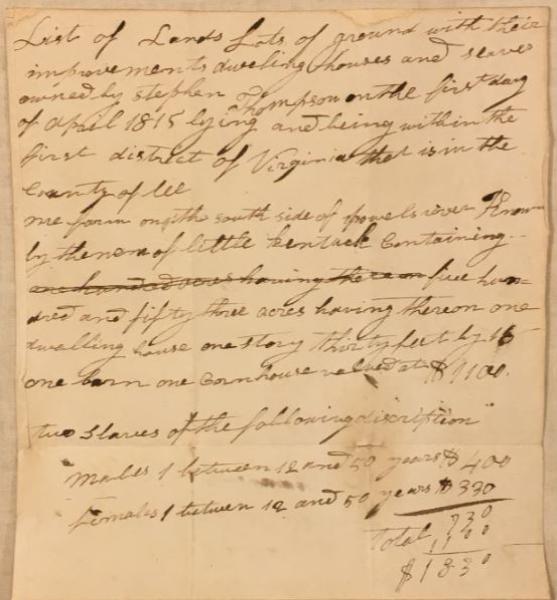 List of Lands Lots of ground with their
improvements dweling houses and slaves
owned by Stephen Thompson on the first day
of April 1815 lying and being within the
first district of Virginia that is in the
County of lee
one farm on the south side of powels river Known
by the nem of little kentuck Containing
one hundred acres having thereon five hun=
dred and fifty three acres having thereon one
dwalling house one story thirty feet by 16
one barn one Cornhouse valued at $1100.
two Slaves of the following discription
Males 1 between 12 and 50 years $400
Females 1 betwen 12 and 50 years $330
730
Total 1100
$1830